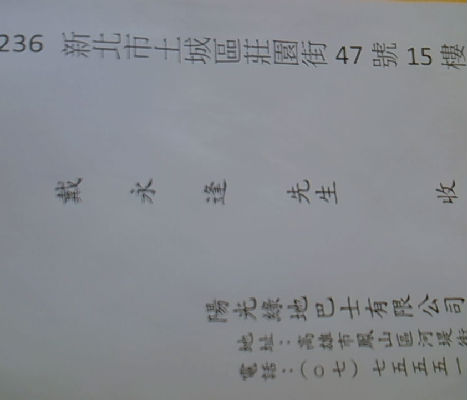 236 新北市土城區莊園街 47 號 15 樓
戴永逢 先生 收
陽光綠地巴士有限公司
地址：高雄市鳳山區河堤街
電話：（〇七）七五五五一